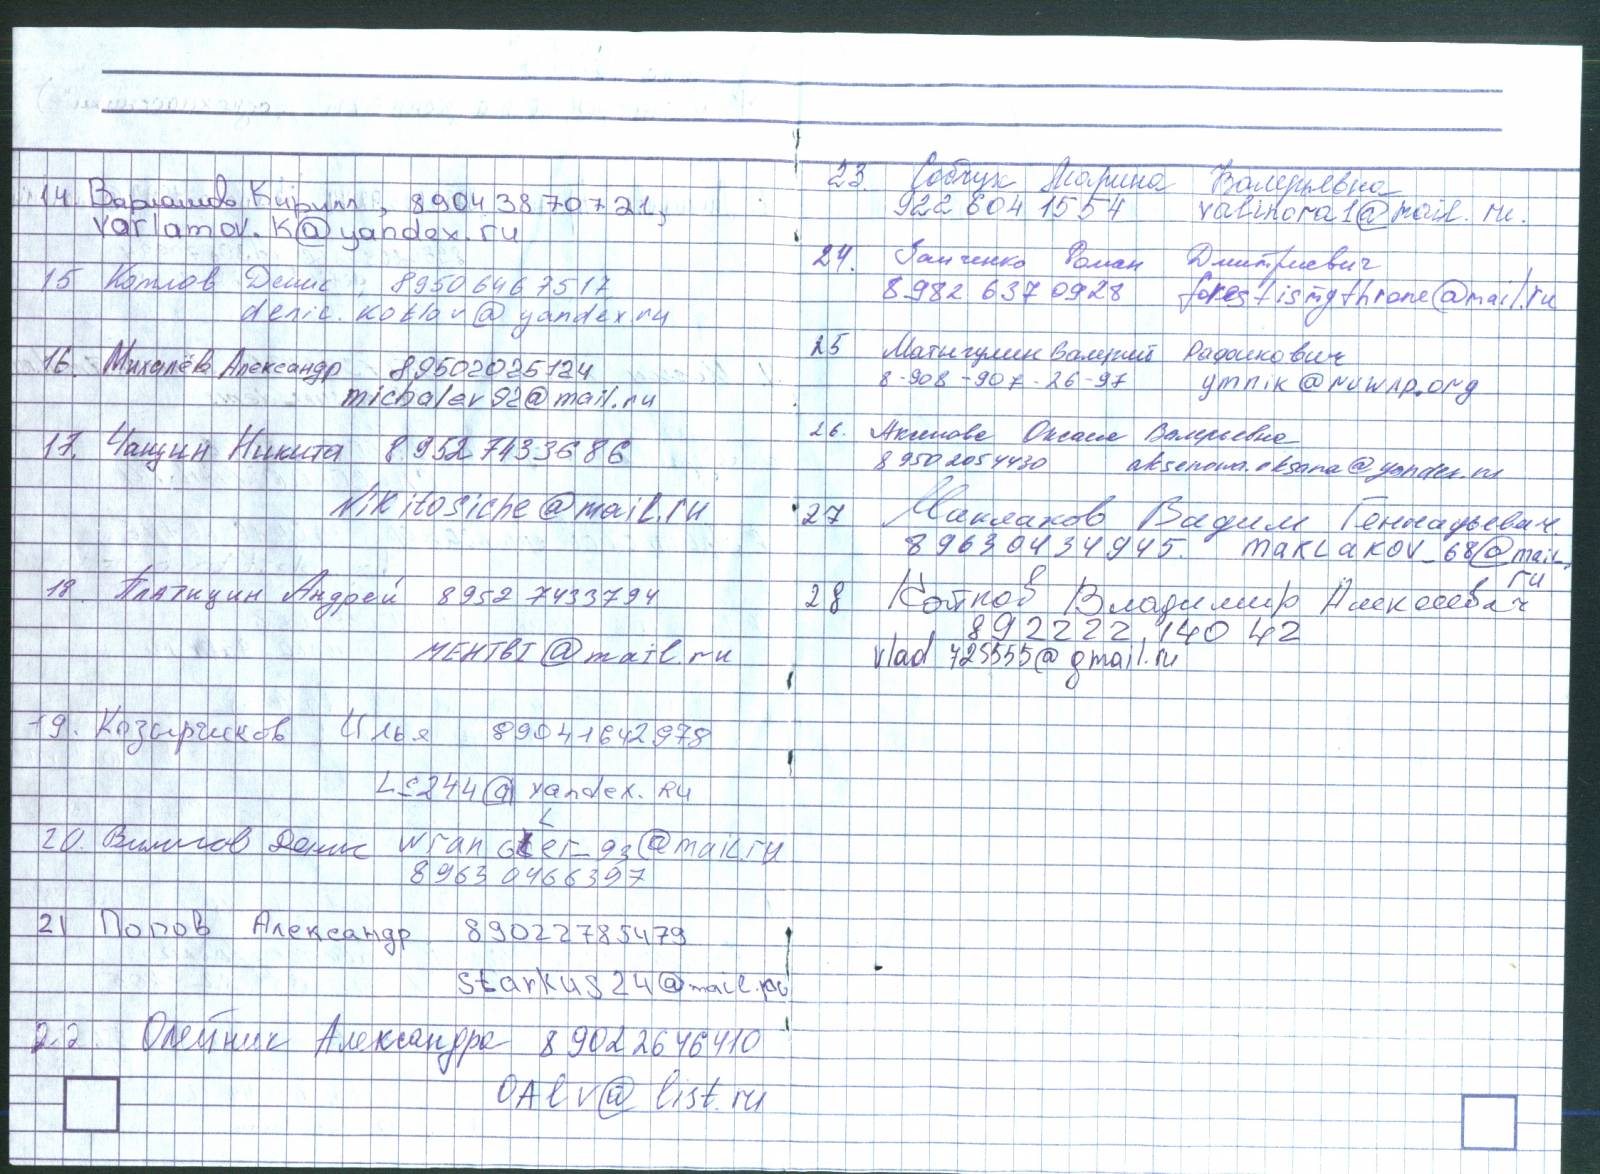 14. Варламов Кирилл, 89043870721,
varlamov.k@yandex.ru
15 Котлов Денис, 89506467517
denic.kotlov@yandex.ru
16. Михалёв Александр 89502025124
michalev92@mail.ru
17. Чащин Никита 89527433686
Nikitosiche@mail.ru
18. Платицин Андрей 89527433794
MEHTBI@mail.ru
19. Козырчиков Илья 89041642978
@yandex.ru
20. Денис
89630466397
21 Попов Александр 89022785479
starkus24@mail.ru
22. Олейник Александра 89022646410
OAlv@list.ru
23. Собчук Марина Валерьевна
922 604 1554 valinora1@mail.ru.
24. Ганченко Роман Дмитриевич
8 982 637 0928 forestismythrone@mail.ru
25 Матигулин Валерий
8-908-907-26-97 ymnik@nuwap.org
26. Аксенова Оксана Валерьевна
89502054430 aksenowa.oksana@yandex.ru
27 Маклаков Вадим Геннадьевич.
89630434945. maklakov_68@mail.
ru
28 Владимир Алексеевич
892222 140 42
vlad 725555@gmail.ru